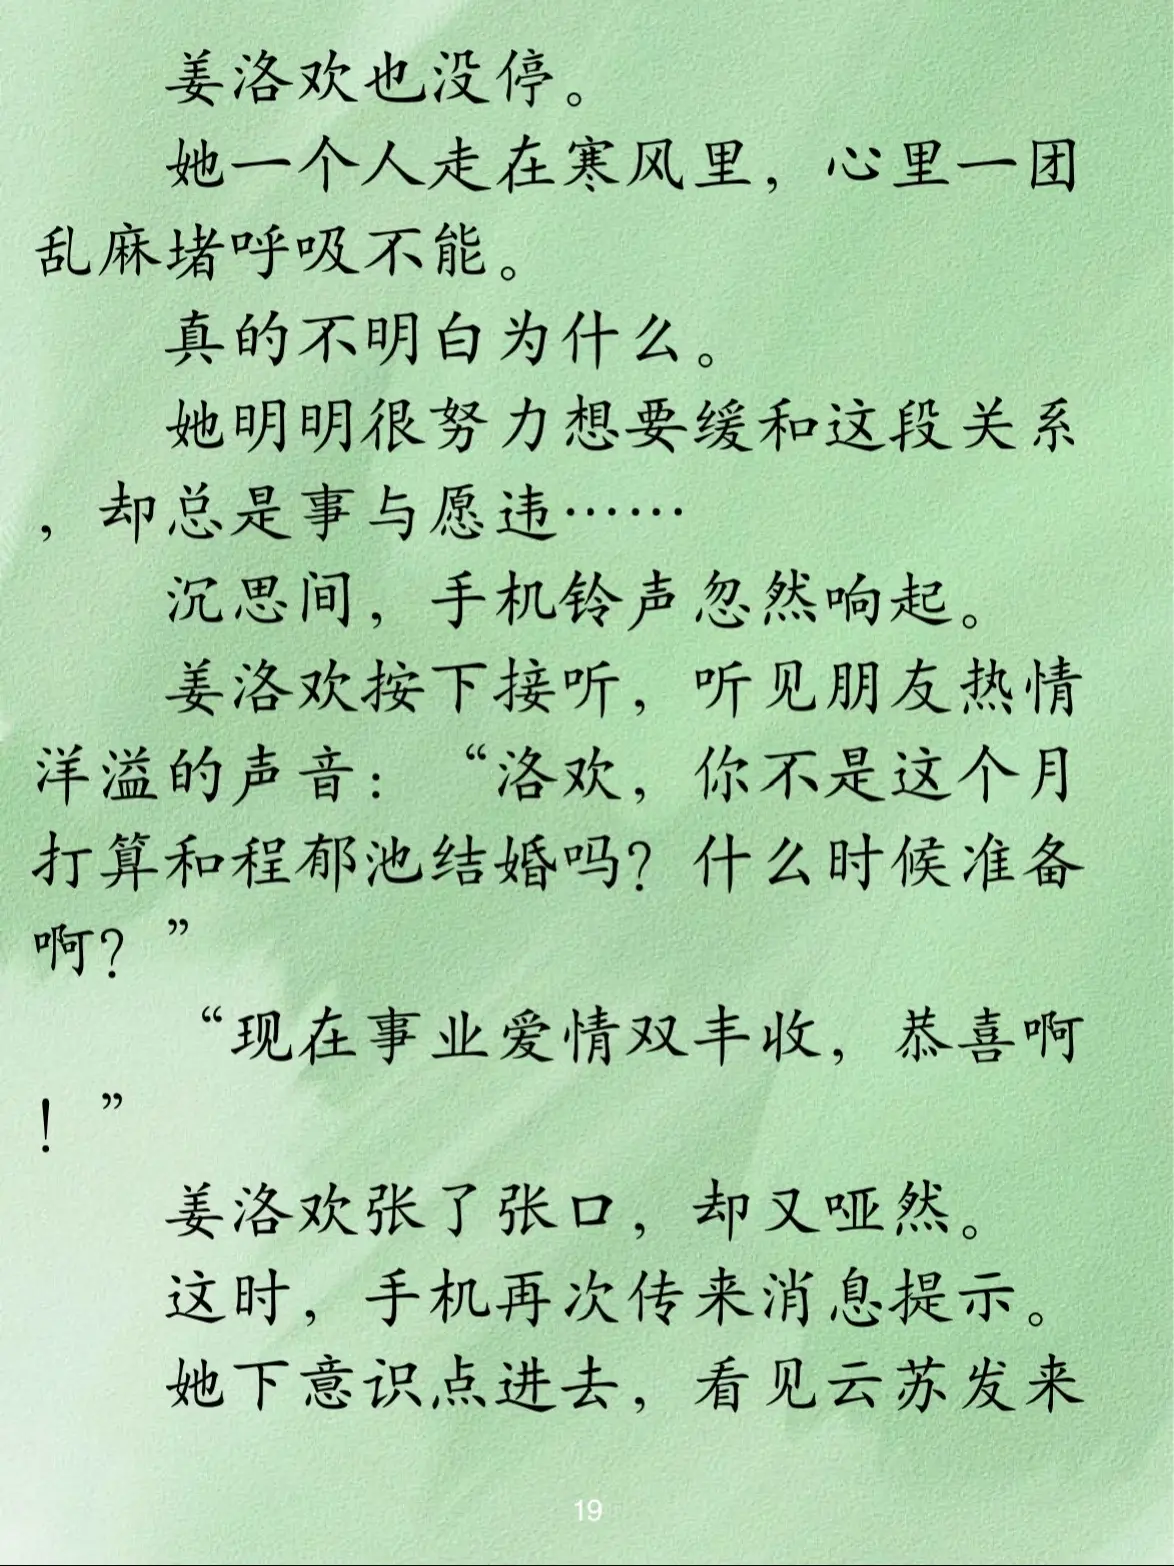 姜洛欢也没停。
她一个人走在寒风里，心里一团
乱麻堵呼吸不能。
真的不明白为什么。
她明明很努力想要缓和这段关系
，却总是事与愿违……
沉思间，手机铃声忽然响起。
姜洛欢按下接听，听见朋友热情
洋溢的声音：“洛欢，你不是这个月
打算和程郁池结婚吗？什么时候准备
啊？”
“现在事业爱情双丰收，恭喜啊
！”
姜洛欢张了张口，却又哑然。
这时，手机再次传来消息提示。
她下意识点进去，看见云苏发来
19